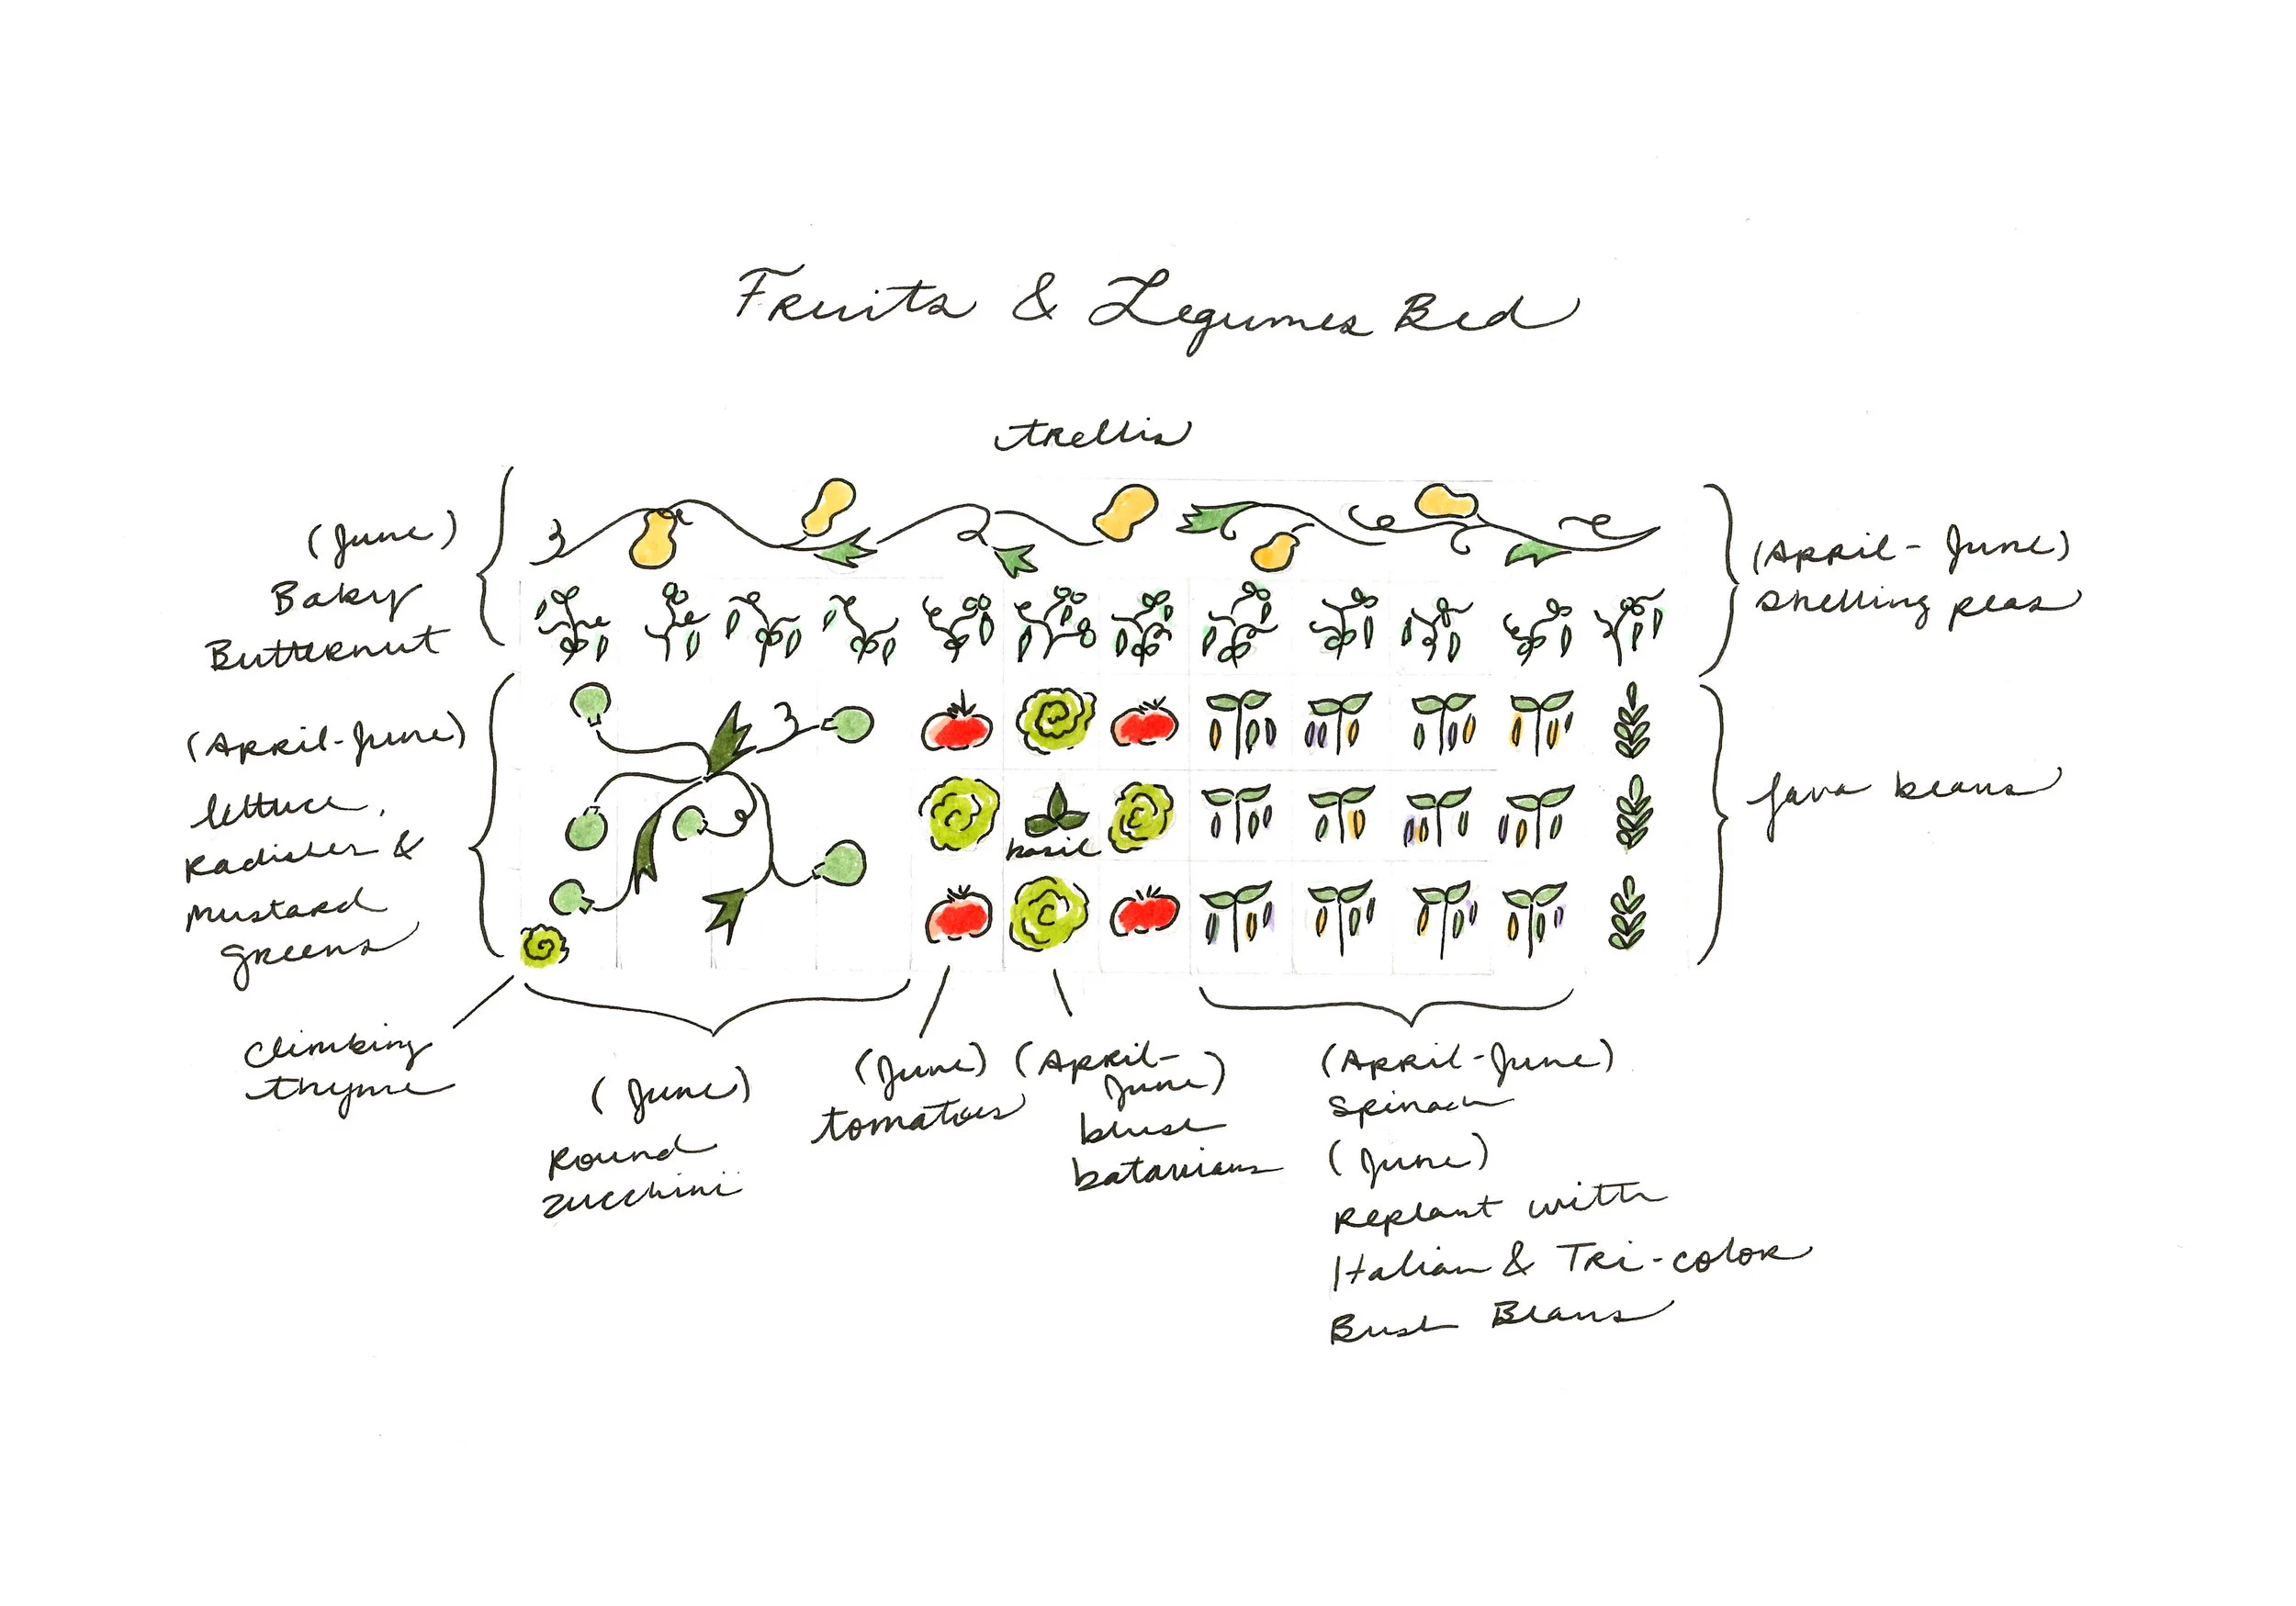 Fruits & Legumes Bed
trellis
(June)
Baby
Butternut
(April-June)
shelling peas
(April-June)
lettuce,
radishes &
mustard
greens
fava beans
basil
climbing
thyme
(June)
Round
zucchini
(June)
tomatoes
(April-
June)
blush
batavians
(April-June)
spinach
(June)
Replant with
Italian & Tri-color
Bush Beans